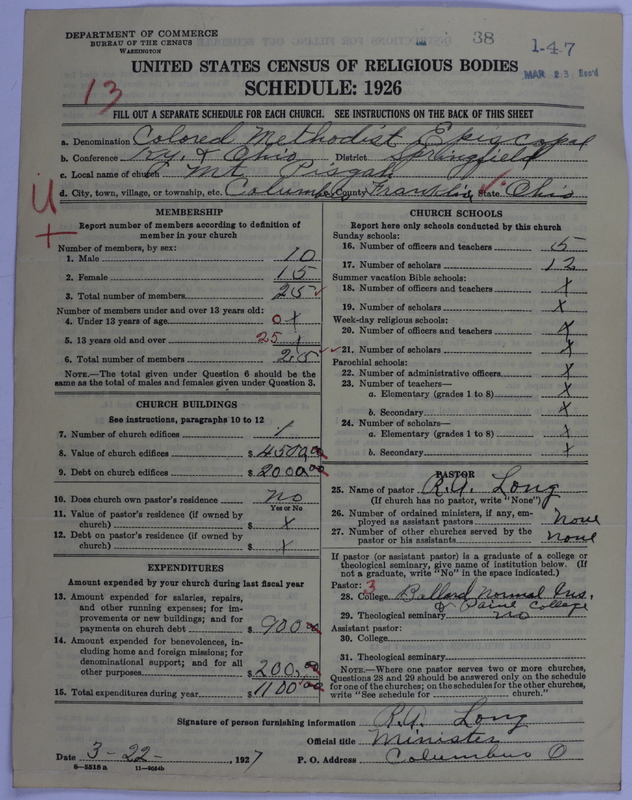 DEPARTMENT OF COMMERCE
BUREAU OF THE CENSUS
WASHINGTON
38
1-47
MAR 23 Rec'd
UNITED STATES CENSUS OF RELIGIOUS BODIES
SCHEDULE: 1926
13
FILL OUT A SEPARATE SCHEDULE FOR EACH CHURCH. SEE INSTRUCTIONS ON THE BACK OF THIS SHEET
a. Denomination Colored Methodist Episcopal
b. Conference Ky. & Ohio District Springfield
c. Local name of church Mt Pisgah
d. City, town, village, or township, etc. Columbus County Franklin State Ohio
U
+
MEMBERSHIP
Report number of members according to definition of member in your church
Number of members, by sex:
1. Male 10
2. Female 15
3. Total number of members 25
Number of members under and over 13 years old:
4. Under 13 years of age 0 x
5. 13 years old and over 25
6. Total number of members 25
NOTE.—The total given under Question 6 should be the same as the total of males and females given under Question 3.
CHURCH BUILDINGS
See instructions, paragraphs 10 to 12
7. Number of church edifices 1
8. Value of church edifices $ 4500.00
9. Debt on church edifices $ 2000.00
10. Does church own pastor's residence No
Yes or No
11. Value of pastor's residence (if owned by church) $ x
12. Debt on pastor's residence (if owned by church) $ x
EXPENDITURES
Amount expended by your church during last fiscal year
13. Amount expended for salaries, repairs, and other running expenses; for improvements or new buildings; and for payments on church debt $ 900.00
14. Amount expended for benevolences, including home and foreign missions; for denominational support; and for all other purposes $ 200.00
15. Total expenditures during year $ 1100.00
CHURCH SCHOOLS
Report here only schools conducted by this church
Sunday schools:
16. Number of officers and teachers 5
17. Number of scholars 12
Summer vacation Bible schools:
18. Number of officers and teachers x
19. Number of scholars x
Week-day religious schools:
20. Number of officers and teachers x
21. Number of scholars x
Parochial schools:
22. Number of administrative officers x
23. Number of teachers—
a. Elementary (grades 1 to 8) x
b. Secondary x
24. Number of scholars—
a. Elementary (grades 1 to 8) x
b. Secondary x
PASTOR
25. Name of pastor R.A. Long
(If church has no pastor, write "None")
26. Number of ordained ministers, if any, employed as assistant pastors None
27. Number of other churches served by the pastor or his assistants none
If pastor (or assistant pastor) is a graduate of a college or theological seminary, give name of institution below. (If not a graduate, write "No" in the space indicated.)
Pastor: 3
28. College Ballard Normal Ins.
& Paine College
29. Theological seminary no
Assistant pastor:
30. College
31. Theological seminary
NOTE.—Where one pastor serves two or more churches, Questions 28 and 29 should be answered only on the schedule for one of the churches; on the schedules for the other churches, write "See schedule for church."
Signature of person furnishing information R.A. Long
Official title Minister
Date 3-22-, 1927 P. O. Address Columbus O
8-5518 a 11-9054b